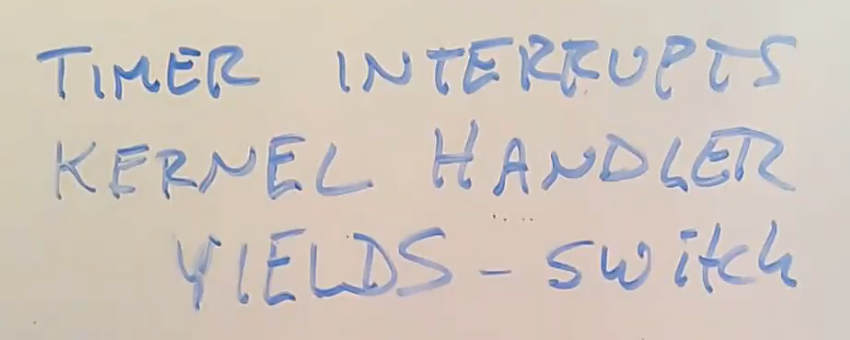 TIMER INTERRUPTS
KERNEL HANDLER
YIELDS - switch